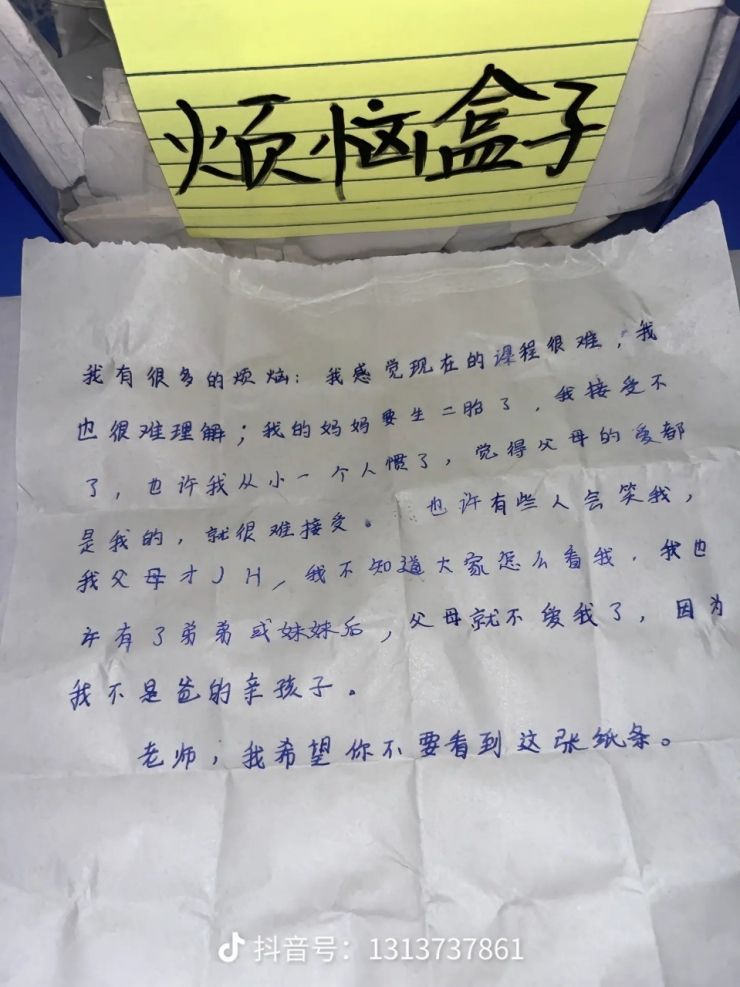 烦恼盒子
我有很多的烦恼：我感觉现在的课程很难，我
也很难理解；我的妈妈要生二胎了，我接受不
了，也许我从小一个人惯了，觉得父母的爱都
是我的，就很难接受。 也许有些人会笑我，
我父母才JH，我不知道大家怎么看我，我也
许有了弟弟或妹妹后，父母就不爱我了，因为
我不是爸的亲孩子。
老师，我希望你不要看到这张纸条。
抖音号：1313737861